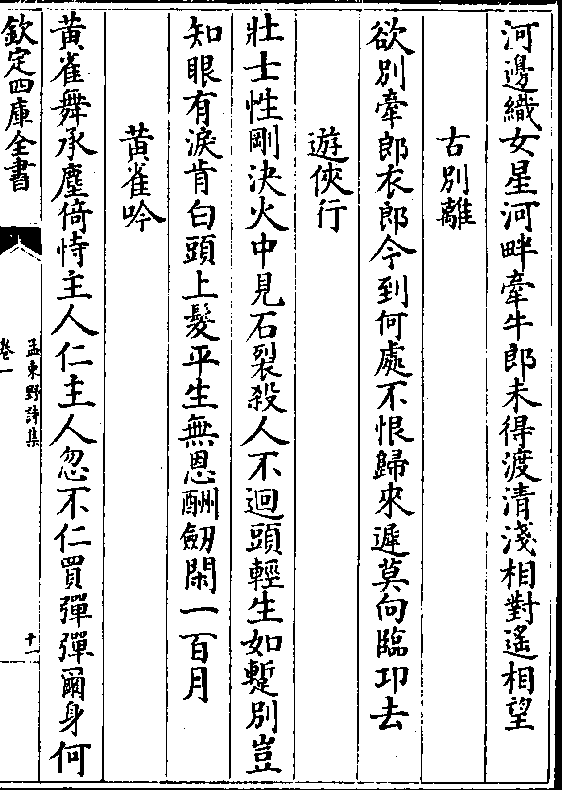 河邊織女星河畔牽牛郎未得渡清淺相對遙相望
古別離
欲別牽郎衣郎今到何處不恨歸來遲莫向臨卭去
遊俠行
壯士性剛決火中見石裂殺人不迴頭輕生如蹔別豈
知眼有淚肯白頭上髮平生無恩酬劒閑一百月
黃雀吟
黃雀舞承塵倚恃主人仁主人忽不仁買彈彈爾身何
欽定四庫全書
孟東野詩集
卷一
十一